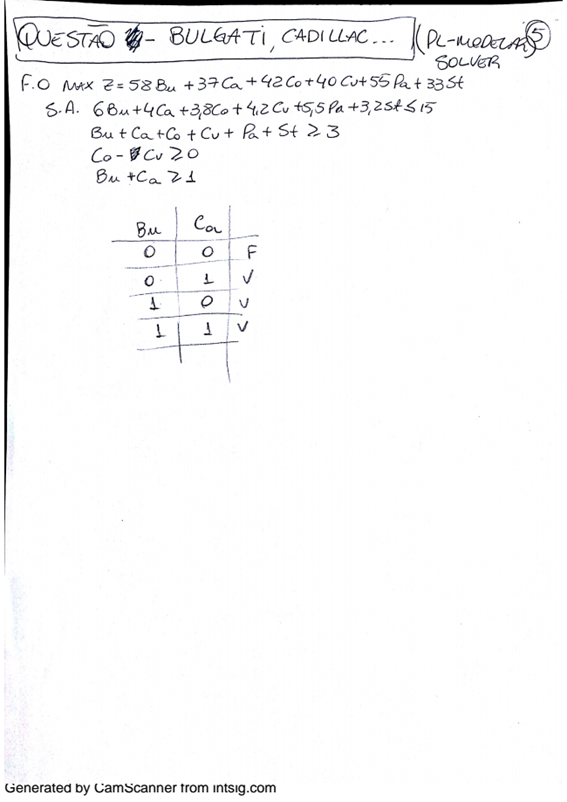 QUESTÃO - BULGATI, CADILLAC... (PL-MODELAR, 5
SOLVER
F.O MAX Z = 58Bu + 37Ca + 42Co + 40Cu + 55Pa + 33St
S.A. 6Bu + 4Ca + 3,8Co + 4,2Cu + 5,5Pa + 3,2St ≤ 15
Bu + Ca + Co + Cu + Pa + St ≥ 3
Co - Cu ≥ 0
Bu + Ca ≥ 1
Bu Ca
0 0 F
0 1 V
1 0 V
1 1 V
Generated by CamScanner from intsig.com